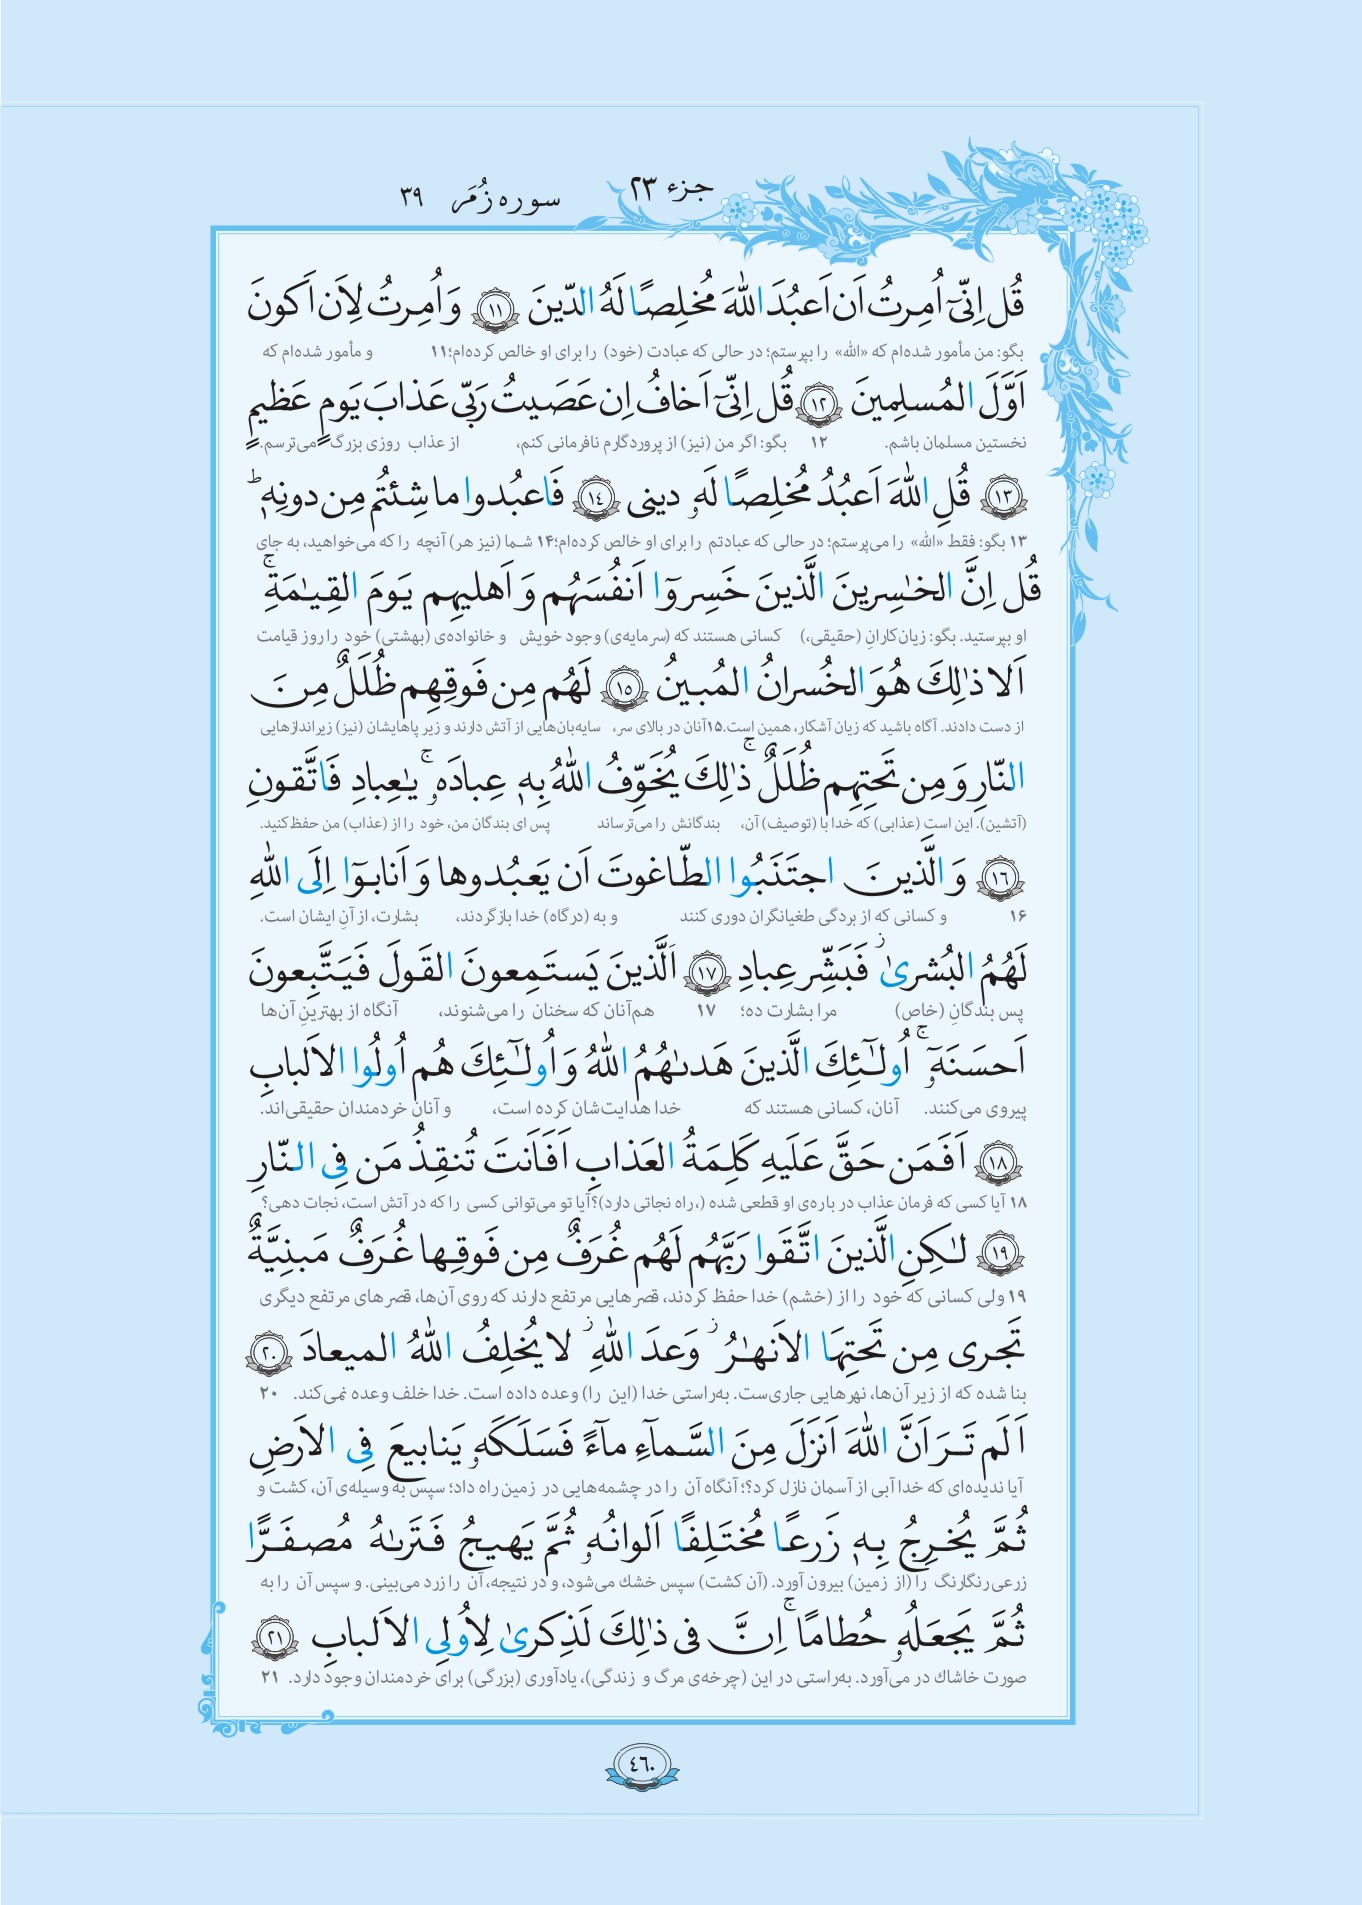 جزء ۲۳
سوره زُمَر ۳۹
قُل اِنّیٓ اُمِرتُ اَن اَعبُدَ اللّٰهَ مُخلِصًا لَهُ الدّینَ ﴿۱۱﴾ وَ اُمِرتُ لِاَن اَکونَ
بگو: من مأمور شده‌ام که «الله» را بپرستم؛ در حالی که عبادت (خود) را برای او خالص کرده‌ام؛۱۱ و مأمور شده‌ام که
اَوَّلَ المُسلِمینَ ﴿۱۲﴾ قُل اِنّیٓ اَخافُ اِن عَصَیتُ رَبّی عَذابَ یَومٍ عَظیمٍ
نخستین مسلمان باشم. ۱۲ بگو: اگر من (نیز) از پروردگارم نافرمانی کنم، از عذاب روزی بزرگ می‌ترسم.
﴿۱۳﴾ قُلِ اللّٰهَ اَعبُدُ مُخلِصًا لَهٗ دینی ﴿۱٤﴾ فَاعبُدوا ما شِئتُم مِن دونِهٖ ؕ
۱۳ بگو: فقط «الله» را می‌پرستم؛ در حالی که عبادتم را برای او خالص کرده‌ام؛۱۴ شما (نیز هر) آنچه را که می‌خواهید، به جای
قُل اِنَّ الخٰسِرینَ الَّذینَ خَسِروٓا اَنفُسَهُم وَ اَهلیهِم یَومَ القِیٰمَةِ ۚ
او بپرستید. بگو: زیان‌کارانِ (حقیقی،) کسانی هستند که (سرمایه‌ی) وجود خویش و خانواده‌ی (بهشتی) خود را روز قیامت
اَلا ذٰلِكَ هُوَ الخُسرانُ المُبینُ ﴿۱٥﴾ لَهُم مِن فَوقِهِم ظُلَلٌ مِنَ
از دست دادند. آگاه باشید که زیان آشکار، همین است.۱۵آنان در بالای سر، سایه‌بان‌هایی از آتش دارند و زیر پاهایشان (نیز) زیراندازهایی
النّارِ وَ مِن تَحتِهِم ظُلَلٌ ۚ ذٰلِكَ یُخَوِّفُ اللّٰهُ بِهٖ عِبادَهٗ ۚ یٰعِبادِ فَاتَّقونِ
(آتشین). این است (عذابی) که خدا با (توصیف) آن، بندگانش را می‌ترساند پس ای بندگان من، خود را از (عذاب) من حفظ کنید.
﴿۱٦﴾ وَ الَّذینَ اجتَنَبُوا الطّاغوتَ اَن یَعبُدوها وَ اَنابوٓا اِلَی اللّٰهِ
۱۶ و کسانی که از بردگی طغیانگران دوری کنند و به (درگاه) خدا بازگردند، بشارت، از آنِ ایشان است.
لَهُمُ البُشریٰ ۚ فَبَشِّر عِبادِ ﴿۱۷﴾ اَلَّذینَ یَستَمِعونَ القَولَ فَیَتَّبِعونَ
پس بندگانِ (خاص) مرا بشارت ده؛ ۱۷ هم‌آنان که سخنان را می‌شنوند، آنگاه از بهترینِ آن‌ها
اَحسَنَهٗٓ ۚ اُولٰٓئِكَ الَّذینَ هَدىٰهُمُ اللّٰهُ وَ اُولٰٓئِكَ هُم اُولُوا الاَلبابِ
پیروی می‌کنند. آنان، کسانی هستند که خدا هدایت‌شان کرده است، و آنان خردمندان حقیقی‌اند.
﴿۱۸﴾ اَفَمَن حَقَّ عَلَیهِ کَلِمَةُ العَذابِ اَفَاَنتَ تُنقِذُ مَن فِی النّارِ
۱۸ آیا کسی که فرمان عذاب در باره‌ی او قطعی شده (،راه نجاتی دارد)؟آیا تو می‌توانی کسی را که در آتش است، نجات دهی؟
﴿۱۹﴾ لٰکِنِ الَّذینَ اتَّقَوا رَبَّهُم لَهُم غُرَفٌ مِن فَوقِها غُرَفٌ مَبنِیَّةٌ
۱۹ ولی کسانی که خود را از (خشم) خدا حفظ کردند، قصرهایی مرتفع دارند که روی آن‌ها، قصرهای مرتفع دیگری
تَجری مِن تَحتِهَا الاَنهٰرُ ۖ وَعدَ اللّٰهِ ۖ لا یُخلِفُ اللّٰهُ المیعادَ ﴿۲۰﴾
بنا شده که از زیر آن‌ها، نهرهایی جاری‌ست. به‌راستی خدا (این را) وعده داده است. خدا خلف وعده نمی‌کند. ۲۰
اَلَم تَرَ اَنَّ اللّٰهَ اَنزَلَ مِنَ السَّمآءِ مآءً فَسَلَکَهٗ یَنابیعَ فِی الاَرضِ
آیا ندیده‌ای که خدا آبی از آسمان نازل کرد؟؛ آنگاه آن را در چشمه‌هایی در زمین راه داد؛ سپس به وسیله‌ی آن، کشت و
ثُمَّ یُخرِجُ بِهٖ زَرعًا مُختَلِفًا اَلوانُهٗ ثُمَّ یَهیجُ فَتَرىٰهُ مُصفَرًّا
زرعی رنگارنگ را (از زمین) بیرون آورد. (آن کشت) سپس خشك می‌شود، و در نتیجه، آن را زرد می‌بینی. و سپس آن را به
ثُمَّ یَجعَلُهٗ حُطامًا ۚ اِنَّ فی ذٰلِكَ لَذِکریٰ لِاُولِی الاَلبابِ ﴿۲۱﴾
صورت خاشاك در می‌آورد. به‌راستی در این (چرخه‌ی مرگ و زندگی)، یادآوری (بزرگی) برای خردمندان وجود دارد. ۲۱
٤٦۰